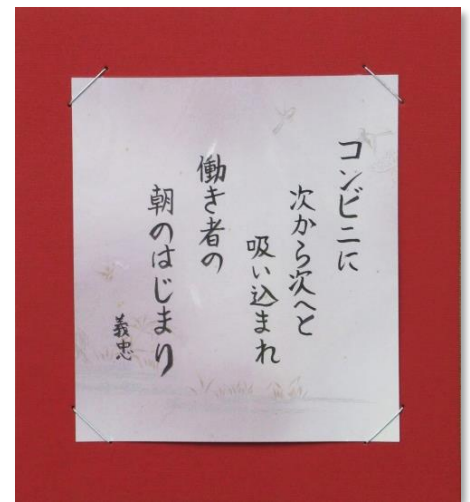 コンビニに
次から次へと
吸い込まれ
働き者の
朝のはじまり
義忠